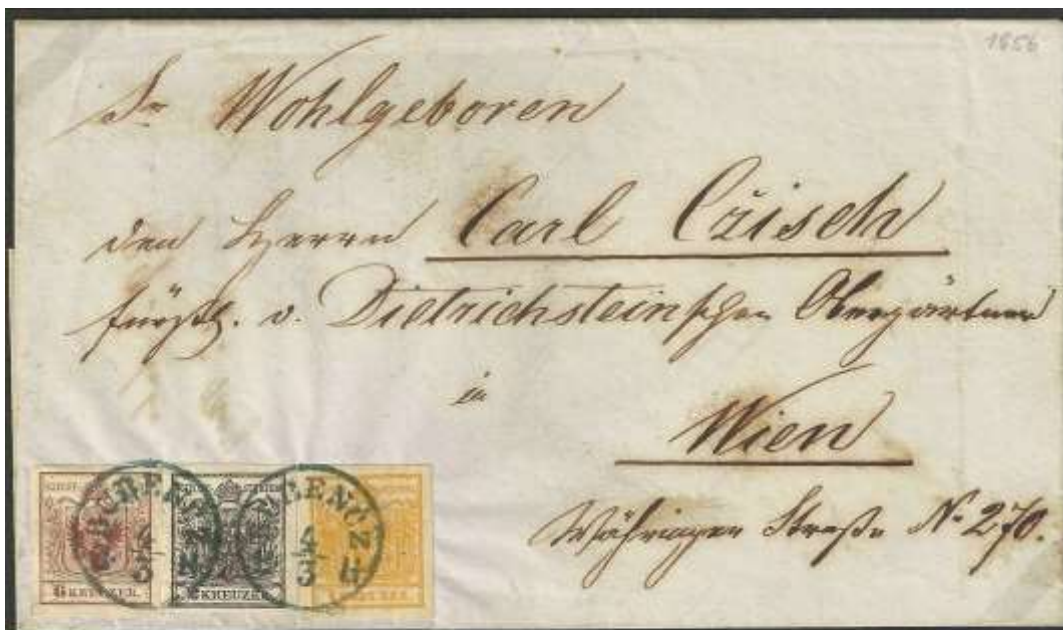 1856
Sr Wohlgeboren
den Herrn Carl Cžisek
fürstl. v. Dietrichsteinschen Obergärtner
in
Wien
Währinger Straße No 270.
6 KREUZER. KREUZER
4 4
3 3